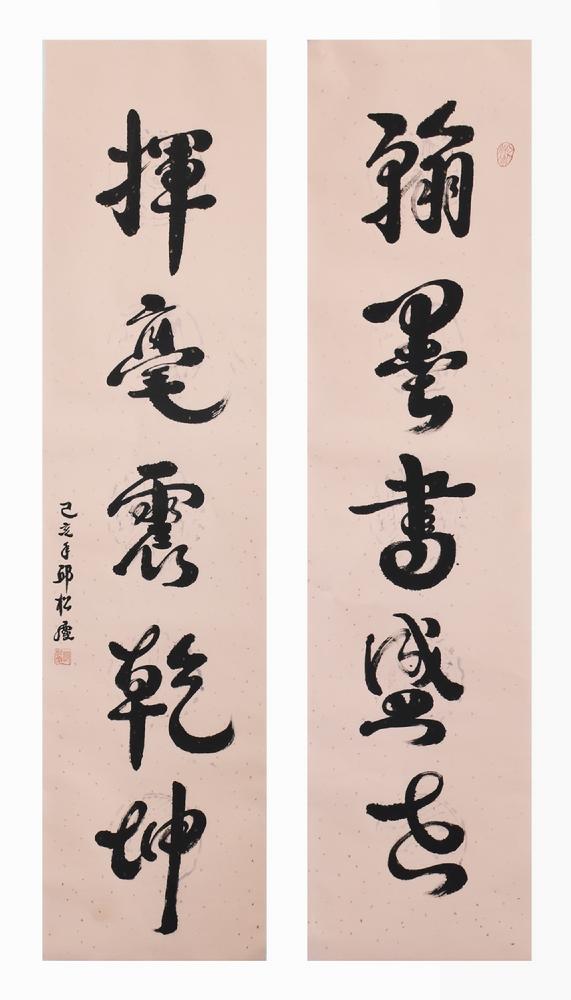 翰墨書盛世
揮毫震乾坤
己亥年邱松